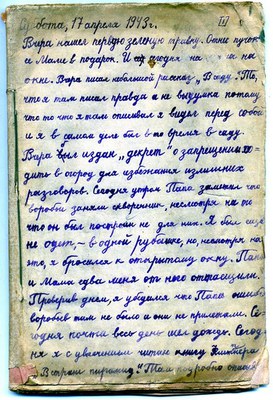 бота, 17 апреля 1943 г.
Вчера нашел первую зеленую травку. Отнес пучок
Маме в подарок. И сегодня на
окне. Вчера писал небольшой рассказ „В саду“. То,
что я там писал правда а не выдумка потому
что то что я там описывал я видел перед собой
и я в самом деле был в то время в саду.
Вчера был издан „декрет“ о запрещении хо-
дить в город для избежания излишних
разговоров. Сегодня утром Папа заметил что
воробьи заняли скворечник, несмотря на то
что он был построен не для них. Я был еще
не одет, в одной рубашке, но, несмотря на
это, я бросился к открытому окну. Папа
и Мама едва меня от него оттащили.
Проверив днем, я убедился что Папа ошибся
воробьев там не было и они не прилетали. Се-
годня почти весь день шел дождь. Сегод
ня я с увлечением читаю книгу
„В стране пирамид“. Там подробно описан